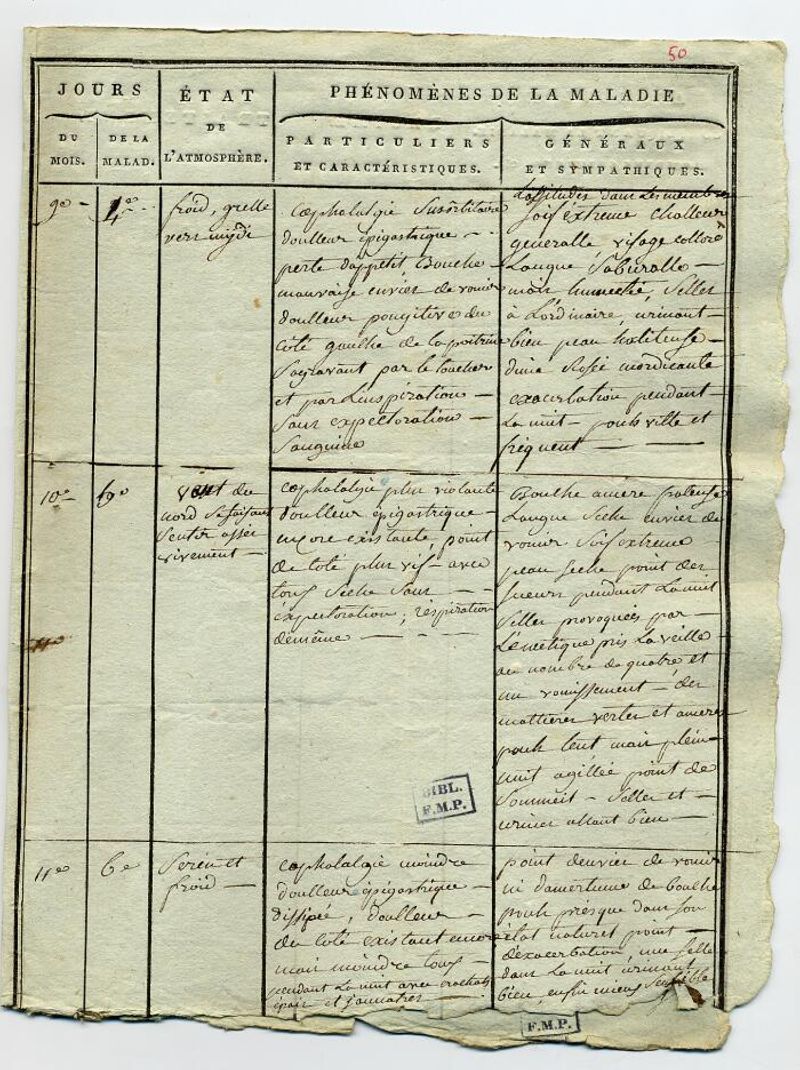 50
JOURS
DU
MOIS.
DE LA
MALAD.
ÉTAT
DE
L'ATMOSPHÈRE.
PHÉNOMÈNES DE LA MALADIE
PARTICULIERS
ET CARACTÉRISTIQUES.
GÉNÉRAUX
ET SYMPATHIQUES.
9e -
froid, grelle
vers miydi
Cœphalalgie Susôrbitaire
doulleur épigastrique - -
perte d'appétit Bouche -
mauvaise envies de vomir
doulleur pongitive du
côté gaulhe de la poitrine
Sagravant par le toucher
et par L'inspiration -
Sans expectoration -
Sanguine
Lassitudes dans Les membres
soif éxtreme challeur
generalle, visage colloré
Langue Saburalle -
mais humecté, Selles
à L'ordinaire, urinant -
bien peau haliteuse -
dune mordicante
éxacerbation pendant -
La nuit - pouls ville et
fréquent - -
10e
vent du
nord Sefaisant
Sentir assés
vivement -
cœphalalgie plus violante
doulleur épigastrique -
encore existante, point
de coté plus vif - avec
toux Séche Sans - -
éxpectoration; réspiration
demême - - -
Bouche amère pateuse
Langue Séche envies de
vomir Soif éxtreme
peau séche point des
sueurs pendant La nuit
Selles provoquées par -
L'émétique pris La veille -
au nombre de quatre, et
un vomissement - des
mattières vertes et amères
pouls lent mais plein -
nuit agillée point de
Sommeil - Selles et -
urines allant bien -
BIBL.
F.M.P.
11e
11e
6e
Serein et
froid -
cœphalalgie moindre
doulleur épigastrique -
dissipée, doulleur -
du coté existant encore
mais moindre toux -
pendant La nuit avec crachats
épais et jaunatres -
point d'envies de vomir
ni d'amertume de bouche
pouls presque dans son
état naturel point -
d'éxacerbation, une selle
dans La nuit urinant
bien, enfin mieux Sensible
F.M.P.